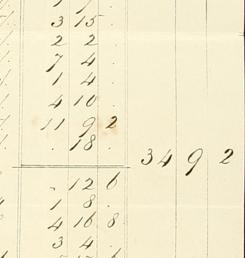 3 15 .
2 2 .
7 4 .
1 4 .
4 10 .
11 9 2
. 18 .
34 9 2
. 12 6
1 8 .
4 16 8
3 4 .